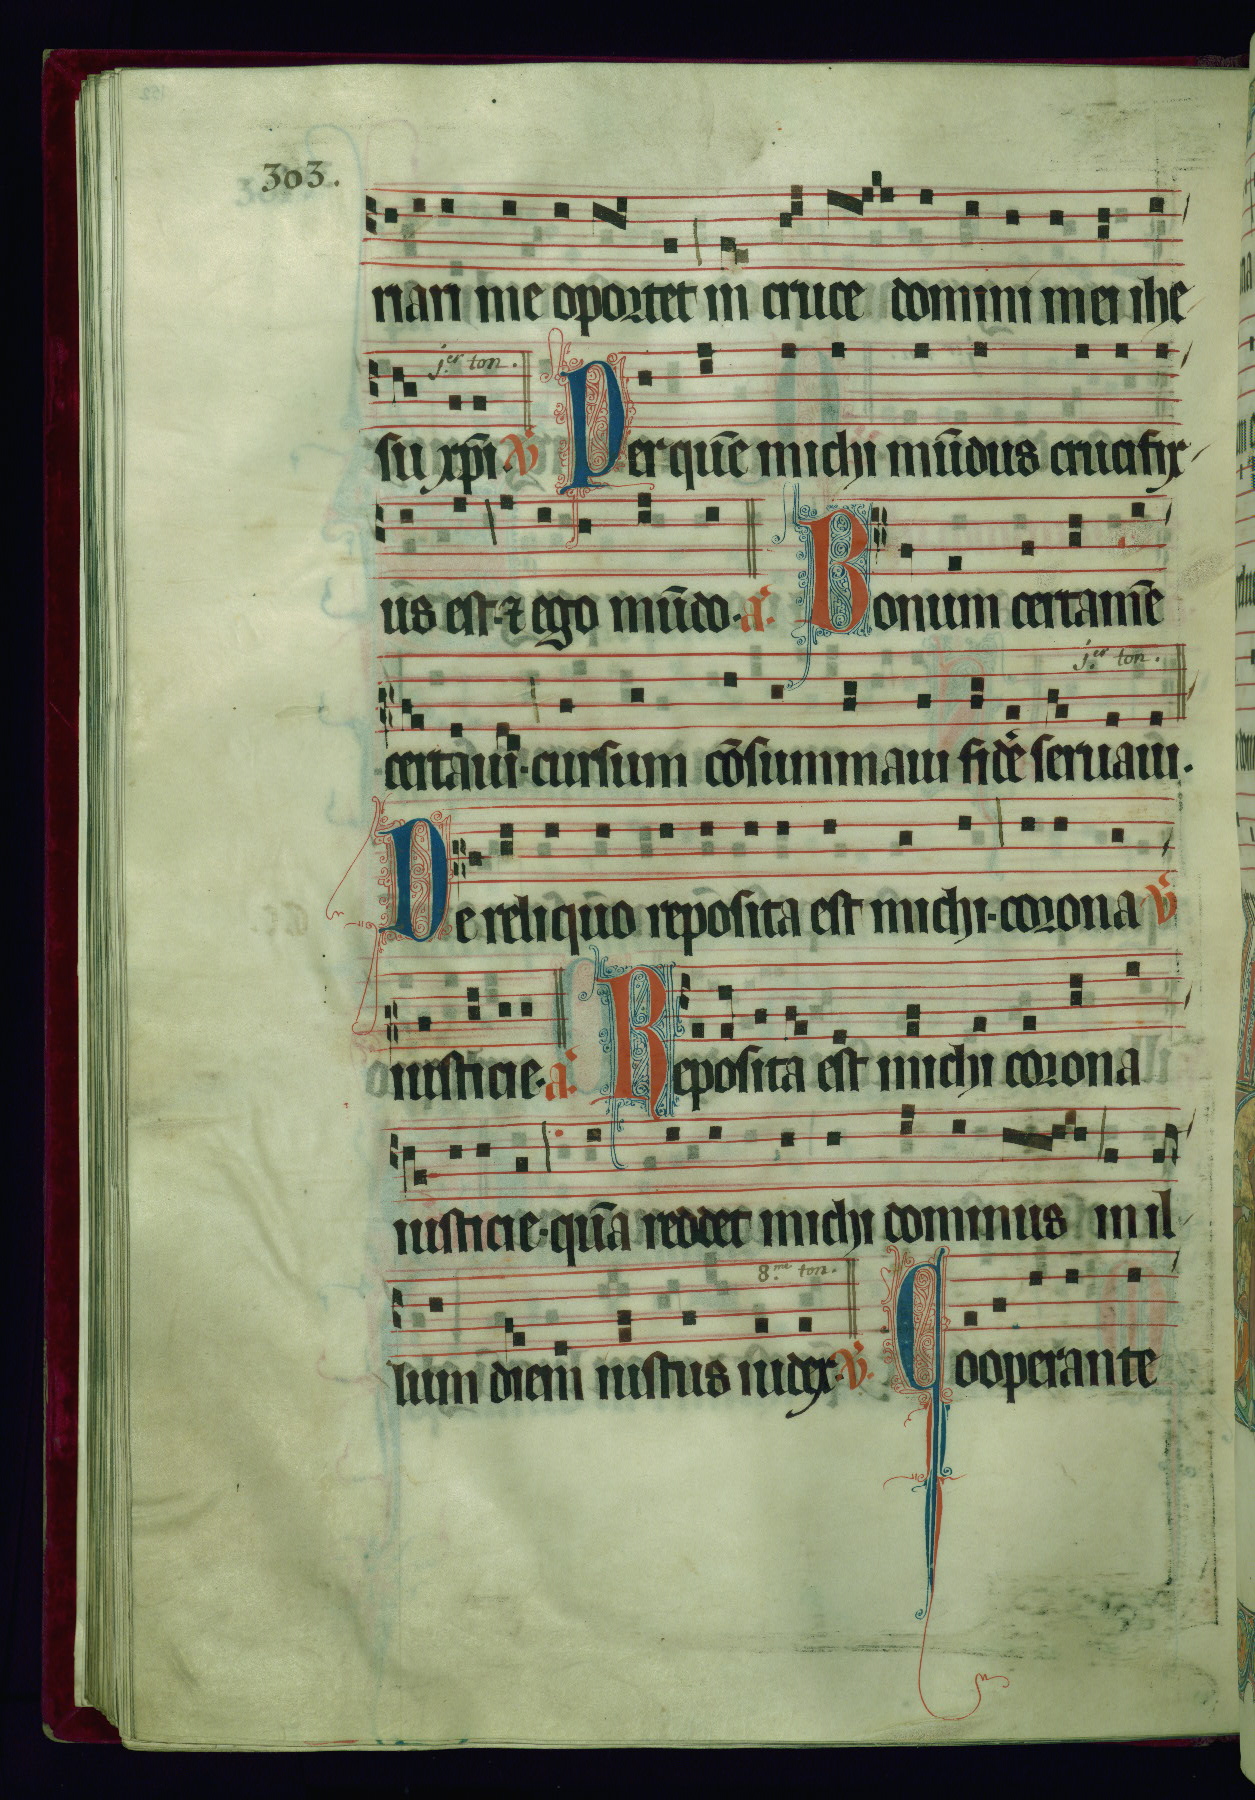 303.
riari me oportet in cruce domini mei ihe
j.er ton.
su xp̄i. v̄ Per quē michi mūdus crucifix
ūs est. ⁊ ego mūdo. a. Bonum certamē
j.er ton.
certaui. cursum cōsummaui fidē seruaui.
De reliquo reposita est michi. corona v̄
iusticie. a. Reposita est michi corona
iusticie. quā reddet michi dominus in il
8.me ton.
lum diem iustus iudex. v̄. Cooperante